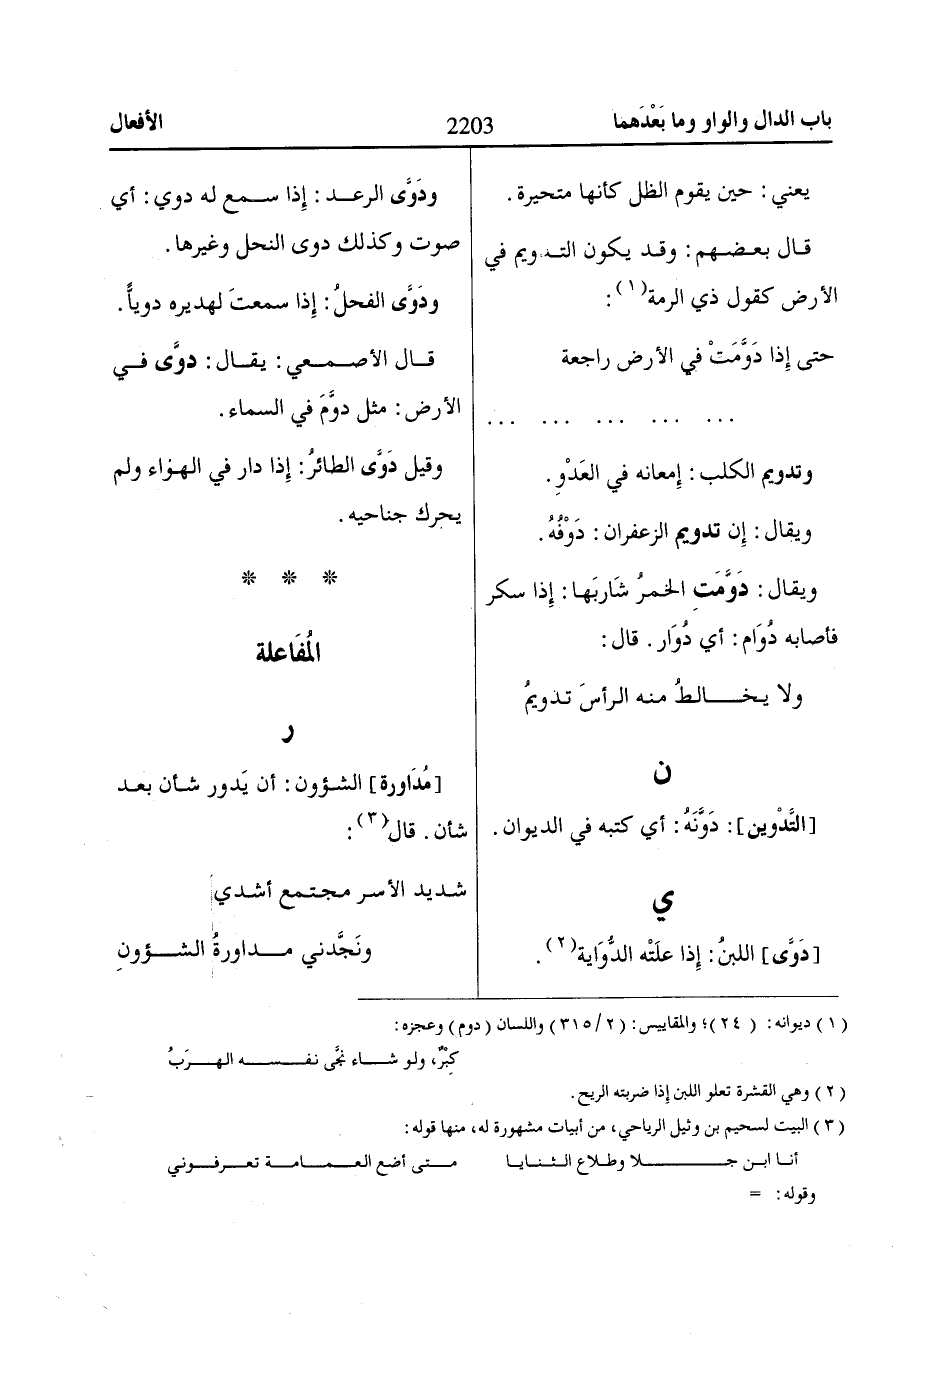 باب الدال والواو وما بَعْدَهما
2203
الأفعال
يعني: حين يقوم الظل كأنها متحيرة.
قال بعضهم: وقد يكون التدويم في
الأرض كقول ذي الرمة(١):
حتى إذا دَوَّمَتْ في الأرض راجعة
... ... ... ... ...
وتدويم الكلب: إمعانه في العَدْوِ.
ويقال: إن تدويم الزعفران: دَوْفُهُ.
ويقال: دَوَّمَتِ الخمرُ شَارِبَها: إذا سكر
فأصابه دُوَام: أي دُوَار. قال:
ولا يخالطُ منه الرأسَ تدويمُ
ن
[التَّدْوين]: دَوَّنَهُ: أي كتبه في الديوان.
ي
[دَوَّى] اللبنُ: إذا علَتْه الدُّوَاية(٢).
ودَوَّى الرعد: إذا سمع له دوي: أي
صوت وكذلك دوى النحل وغيرها.
ودَوَّى الفحلُ: إذا سمعتَ لهديره دوياً.
قال الأصمعي: يقال: دوَّى في
الأرض: مثل دوَّمَ في السماء.
وقيل دَوَّى الطائرُ: إذا دار في الهواء ولم
يحرك جناحيه.
* * *
المُفَاعلة
ر
[مُدَاورة] الشؤون: أن يَدور شأن بعد
شأن. قال(٣):
شديد الأسر مجتمع أشدي
ونَجَّدني مداورةُ الشؤونِ
(١) ديوانه: (٢٤)؛ والمقاييس: (٢/٣١٥) واللسان (دوم) وعجزه:
كِبْرٌ، ولو شاء نجَّى نفسه الهرَبُ
(٢) وهي القشرة تعلو اللبن إذا ضربته الريح.
(٣) البيت لسحيم بن وثيل الرياحي، من أبيات مشهورة له، منها قوله:
أنا ابن جلا وطلاع الثنايا متى أضع العمامة تعرفوني
وقوله: =